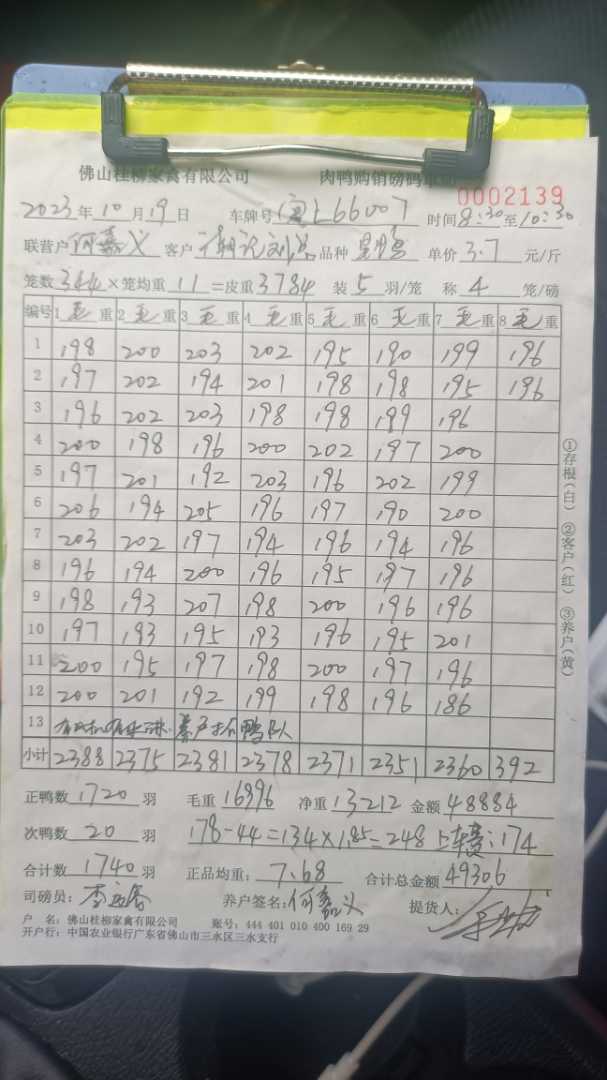 佛山桂柳家禽有限公司 肉鸭购销磅码单 0002139
2023年10月19日 车牌号 66007 时间8:30至10:30
联营户何嘉义 客户 品种 单价3.7元/斤
笼数344×笼均重11=皮重3784 装5羽/笼 称4笼/磅
编号 1毛重 2毛重 3毛重 4毛重 5毛重 6毛重 7毛重 8毛重
1 198 200 203 202 195 190 199 196
2 197 202 194 201 198 198 195 196
3 196 202 203 198 198 199 196
4 200 198 196 200 202 197 200
5 197 201 192 203 196 202 199
6 206 194 205 196 197 190 200
7 203 202 197 194 196 194 196
8 196 194 200 196 195 197 196
9 198 193 207 198 200 196 196
10 197 193 195 193 196 195 201
11 200 195 197 198 200 197 196
12 200 201 192 199 198 196 186
13 养户 鸭队
小计 2388 2375 2381 2378 2371 2351 2360 392
正鸭数1720羽 毛重16996 净重13212 金额48884
次鸭数20羽 178-44=134×1.85=248 上车费:174
合计数1740羽 正品均重:7.68 合计总金额49306
司磅员: 养户签名:何嘉义 提货人:
户 名:佛山桂柳家禽有限公司 账号:444 401 010 400 169 29
开户行:中国农业银行广东省佛山市三水区三水支行
①存根(白) ②客户(红) ③养户(黄)